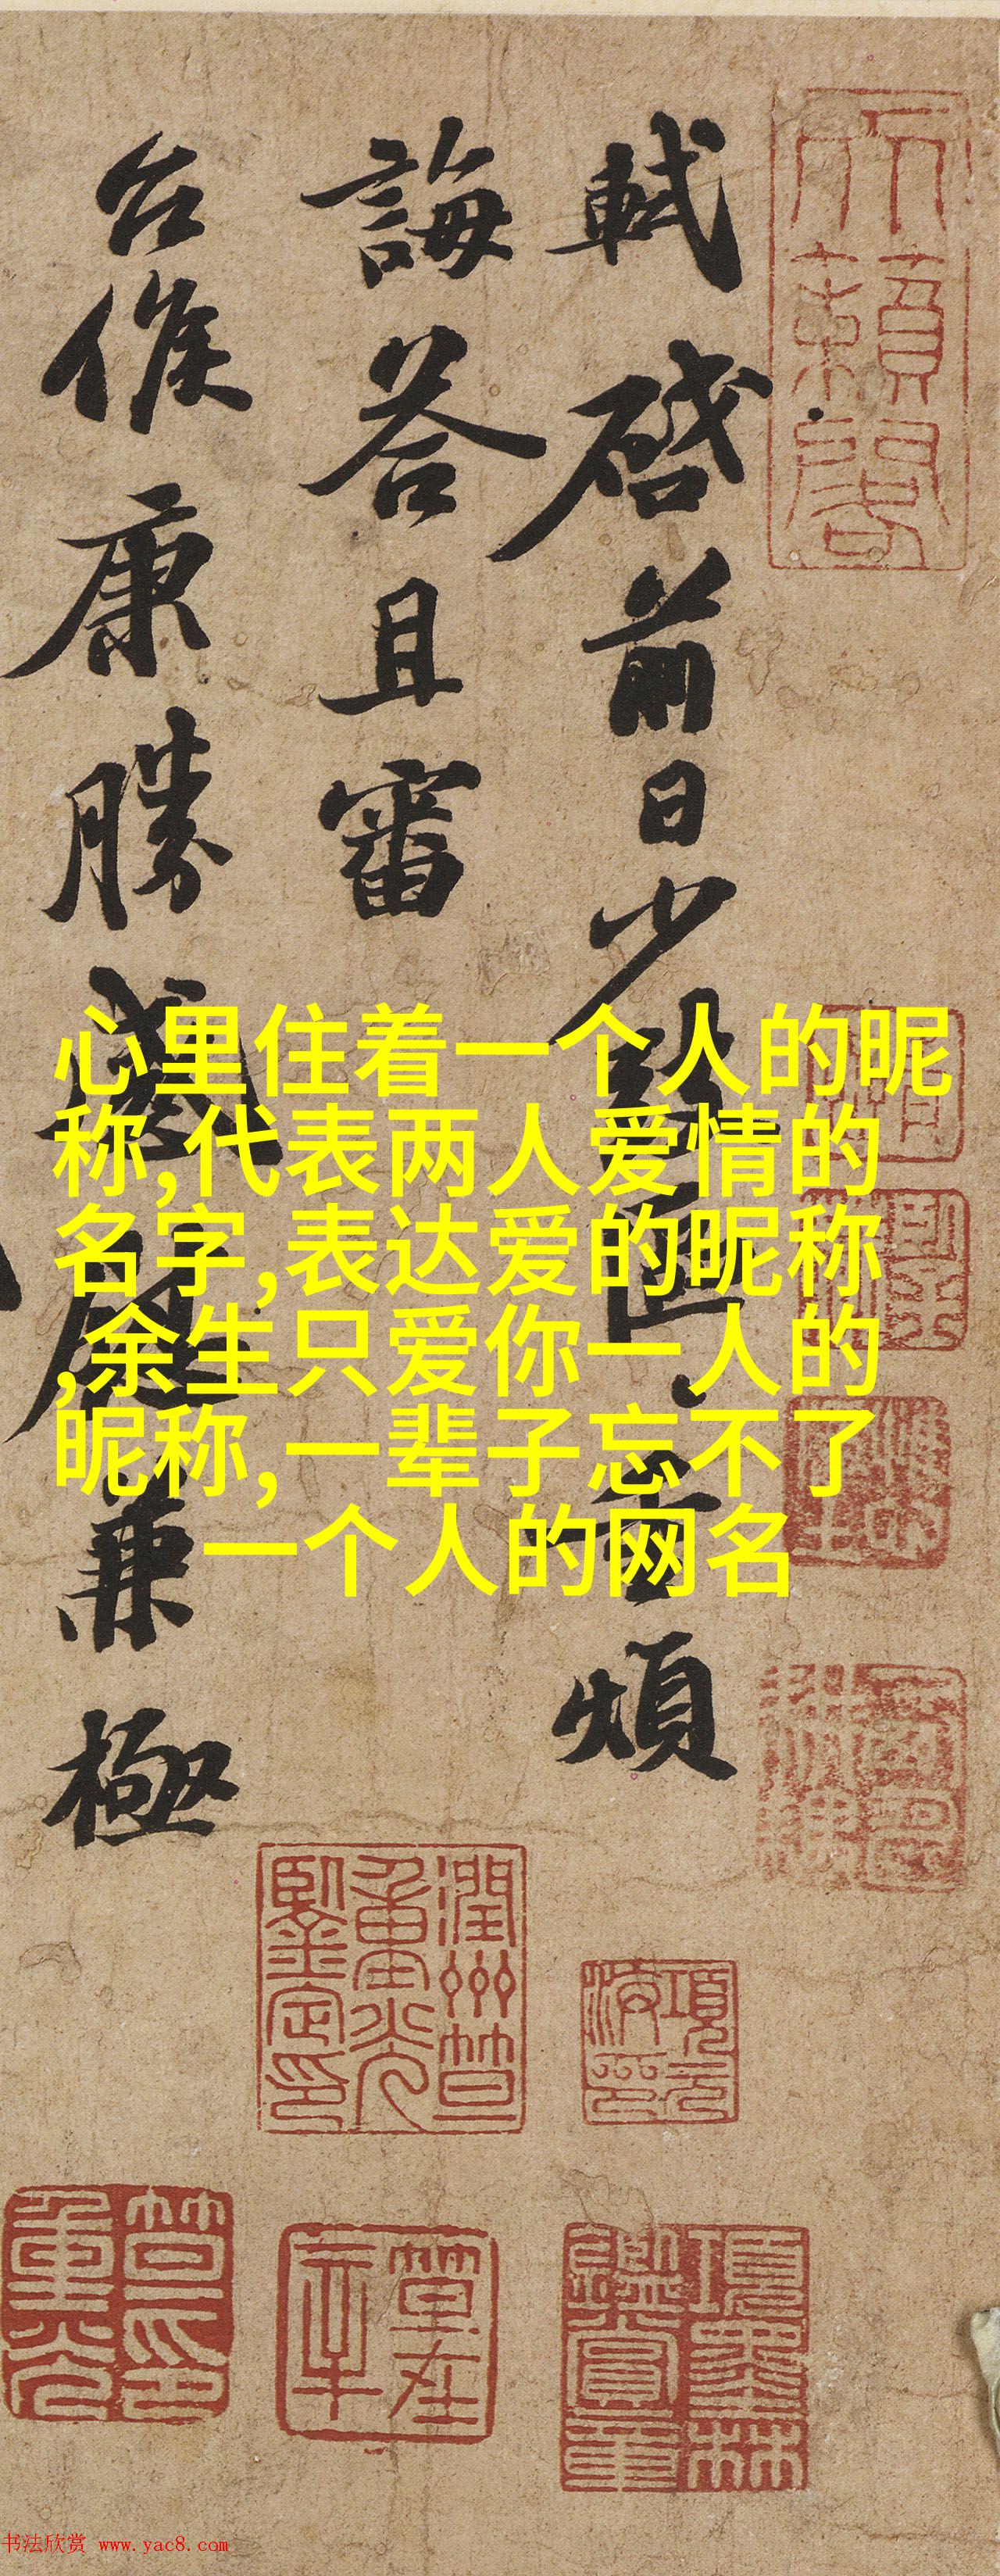 軾啓前日少致區區重煩
誨答且審
台候康勝感慰兼極
心里住着一个人的昵
称,代表两人爱情的
名字,表达爱的昵称
,余生只爱你一人的
昵称,一辈子忘不了
一个人的网名
天籟閣
項墨林鑑賞章
书法欣赏 www.yac8.com